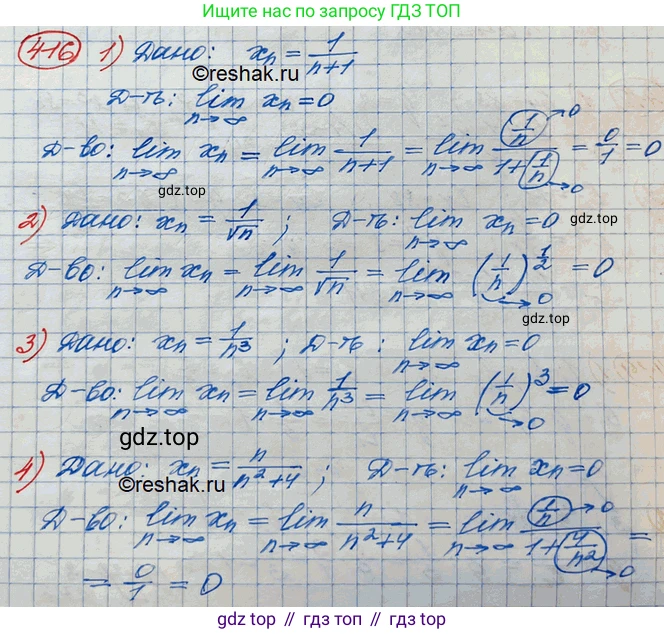 найти больше по запросу ГДЗ ТОП
416 1) Дано: xₙ = 1/(n+1)
©reshak.ru
Д-ть: lim n→∞ xₙ = 0
Д-во: lim n→∞ xₙ = lim n→∞ 1/(n+1) = lim n→∞ (1/n →0)/(1+1/n →0) = 0/1 = 0
gdz.top
2) Дано: xₙ = 1/√n ; Д-ть: lim n→∞ xₙ = 0
gdz.top
Д-во: lim n→∞ xₙ = lim n→∞ 1/√n = lim n→∞ (1/n →0)^(1/2) = 0
gdz.top
3) Дано: xₙ = 1/n³ ; Д-ть: lim n→∞ xₙ = 0
Д-во: lim n→∞ xₙ = lim n→∞ 1/n³ = lim n→∞ (1/n →0)³ = 0
gdz.top
4) Дано: xₙ = n/(n²+4) ; Д-ть: lim n→∞ xₙ = 0
©reshak.ru
Д-во: lim n→∞ xₙ = lim n→∞ n/(n²+4) = lim n→∞ (1/n →0)/(1+4/n² →0) =
= 0/1 = 0
gdz.top // гдз топ // gdz.top